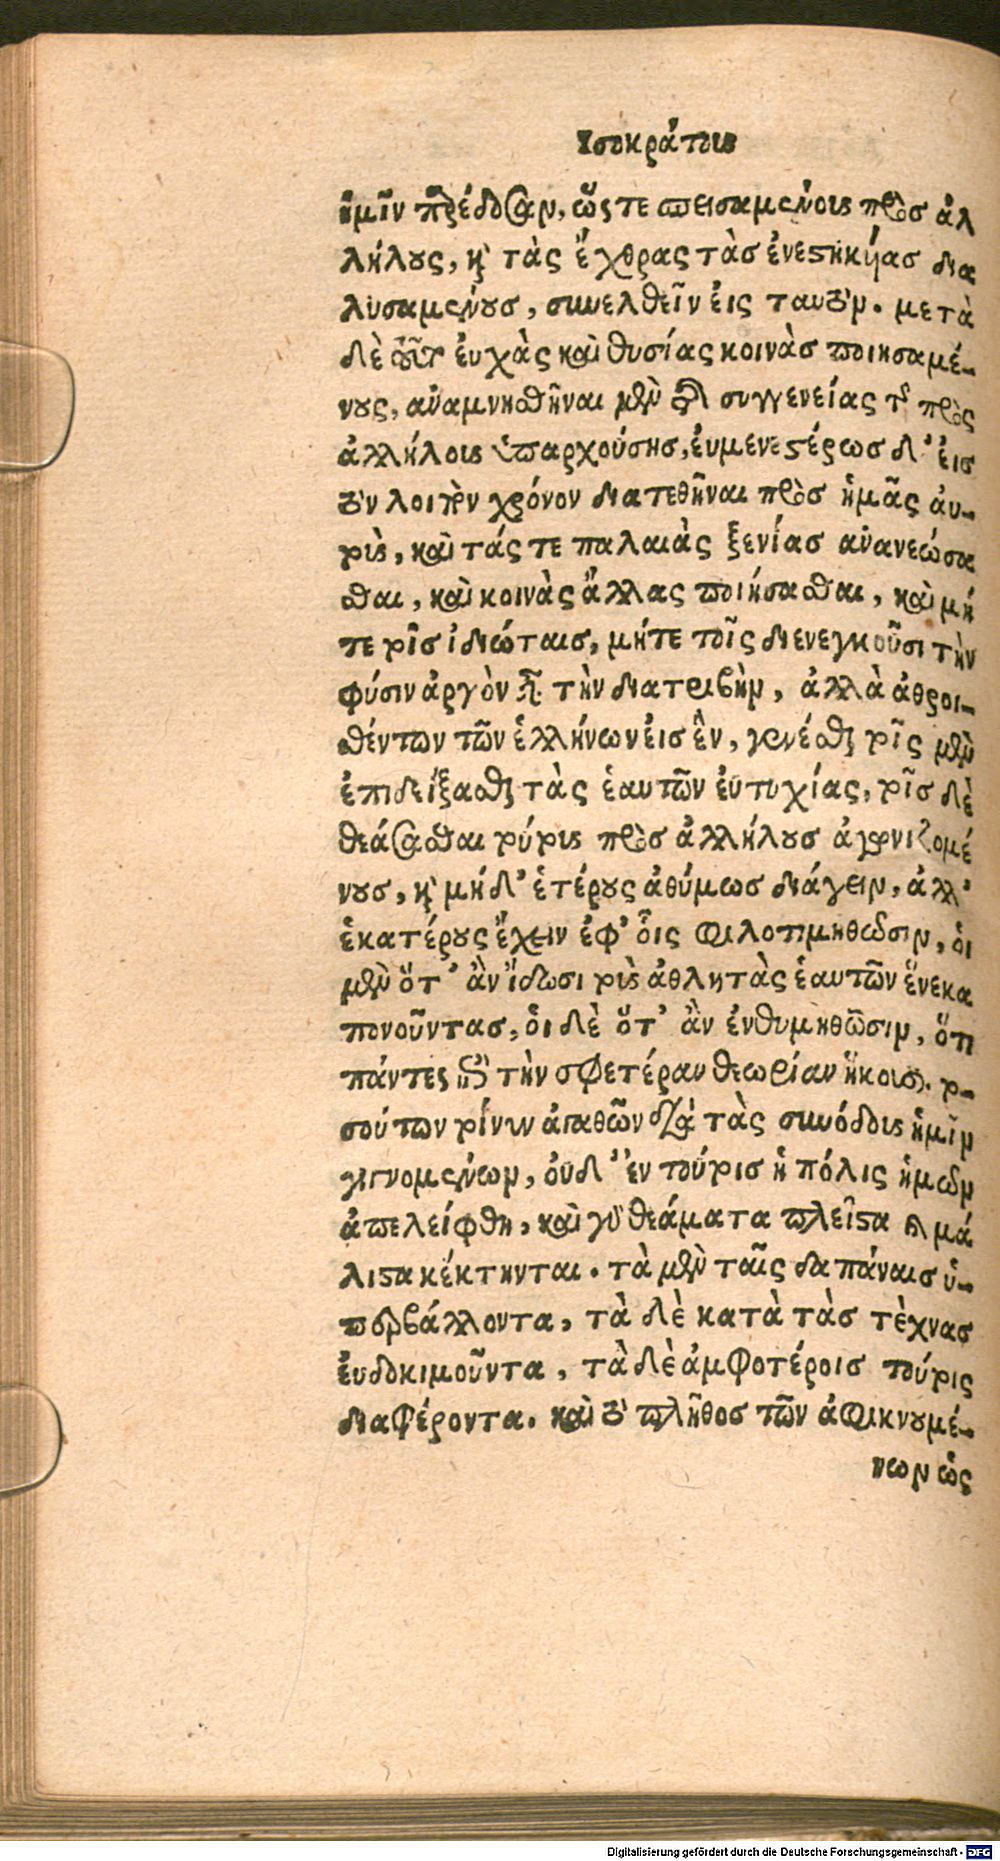 Ισοκράτους
ἡμῖν παρέδοσαν, ὥς τε σπεισαμένους πρὸσ ἀλ
λήλους, καὶ τὰς ἔχθρας τὰσ ἐνεστηκυίασ δια
λυσαμένουσ, συνελθεῖν εἰς ταυτόν. μετὰ
δὲ ταῦτ εὐχὰς καὶ θυσίας κοινὰσ ποιησαμέ-
νους, ἀναμνησθῆναι μὲν τῆς συγγενείας τῆς πρὸς
ἀλλήλους ὑπαρχούσησ, εὐμενεστέρωσ δ' εἰσ
τὸν λοιπὸν χρόνον διατεθῆναι πρὸσ ἡμᾶς αὐ-
τοὺς, καὶ τάς τε παλαιὰς ξενίασ ἀνανεώσα
σθαι, καὶ κοινὰς ἄλλας ποιήσασθαι, καὶ μή
τε τοῖσ ἰδιώταισ, μήτε τοῖς διενεγκοῦσι τὴν
φύσιν ἀργὸν εἶναι τὴν διατριβὴν, ἀλλὰ ἀθροι-
σθέντων τῶν ἑλλήνων εἰσ ἓν, γενέσθαι τοῖς μὲν
ἐπιδείξασθαι τὰς ἑαυτῶν εὐτυχίας, τοῖσ δὲ
θεάσασθαι τούτους πρὸσ ἀλλήλουσ ἀγωνιζομέ
νουσ, καὶ μήδ' ἑτέρους ἀθύμωσ διάγειν, ἀλλ'
ἑκατέρους ἔχειν ἐφ' οἷς φιλοτιμηθῶσιν, οἱ
μὲν ὅτ' ἂν ἴδωσι τοὺς ἀθλητὰς ἑαυτῶν ἕνεκα
πονοῦντασ, οἱ δὲ ὅτ' ἂν ἐνθυμηθῶσιν, ὅτι
πάντες ἐπὶ τὴν σφετέραν θεωρίαν ἥκουσι. το-
σούτων τοίνυν ἀγαθῶν διὰ τὰς συνόδους ἡμῖν
γιγνομένων, οὐδ' ἐν τούτοισ ἡ πόλις ἡμῶν
ἀπελείφθη, καὶ γὰρ θεάματα πλεῖστα καὶ μά
λιστα κέκτηνται. τὰ μὲν ταῖς δαπάναισ ὑ-
περβάλλοντα, τὰ δὲ κατὰ τὰσ τέχνασ
εὐδοκιμοῦντα, τὰ δὲ ἀμφοτέροισ τούτοις
διαφέροντα. καὶ τὸ πλῆθοσ τῶν ἀφικνουμέ-
νων ὡς
Digitalisierung gefördert durch die Deutsche Forschungsgemeinschaft - DFG